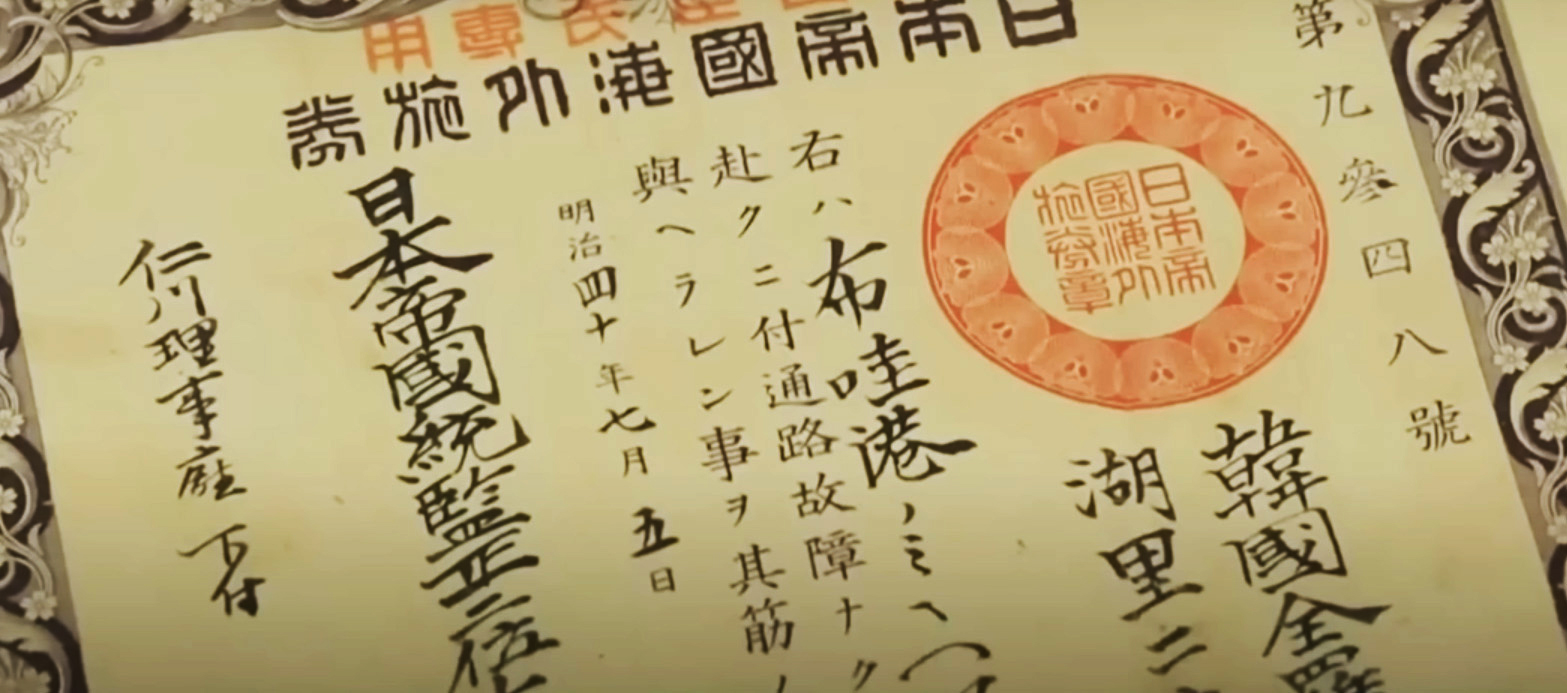 專用
日本帝國海外旅券
第九參四八號
日本帝
國海外
旅券章
韓國全羅
湖里二
右ハ布哇港ノミヘ
赴クニ付通路故障ナク
與ヘラレン事ヲ其筋ノ
明治四十年七月五日
日本帝國統監正二位
仁川理事廳下付